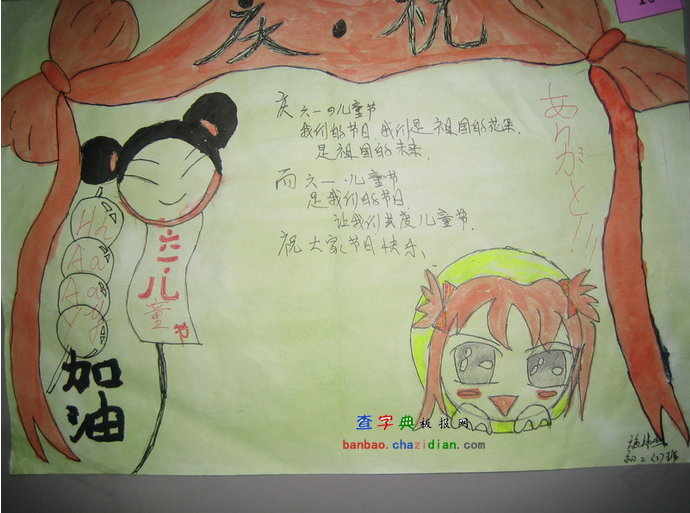 庆·祝
庆六一·儿童节
我们的节日,我们是祖国的花朵.
是祖国的未来.
而六一·儿童节
是我们的节日.
让我们共度儿童节.
祝大家节日快乐.
ありがと!!
六一·儿童节
加油
查字典板报网
banbao.chazidian.com